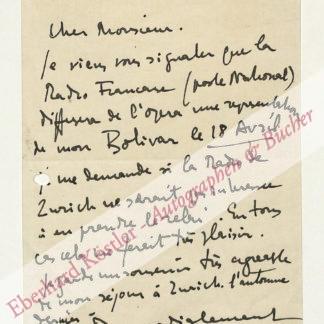 Cher Monsieur.
Je viens vous signaler que la
Radio Française (poste National)
diffusera de l'opera une representation
de mon Bolivar le 18 Avril
je me demande si la Radio de
Zurich ne serait pas intéressée
à en prendre le relai. En tous
cas cela me ferait très plaisir.
Je garde un souvenir très agréable
de mon séjour à Zurich l'automne
dernier
Eberhard Köstler Autographen & Bücher